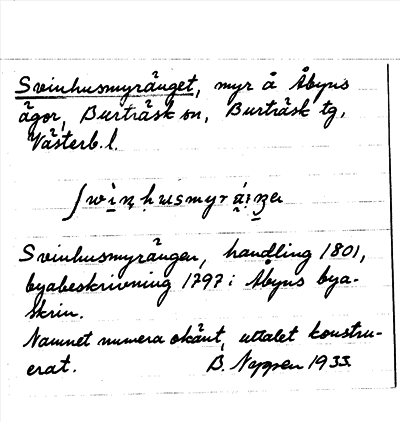 Svinhusmyränget, myr å Åbyns
ägor, Burträsk sn, Burträsk tg,
Västerb. l.
Svinhusmyrängen, handling 1801,
byabeskrivning 1797 i Åbyns bya-
skrin.
Namnet numera okänt, uttalet konstru-
erat. B. Nyppen 1933.